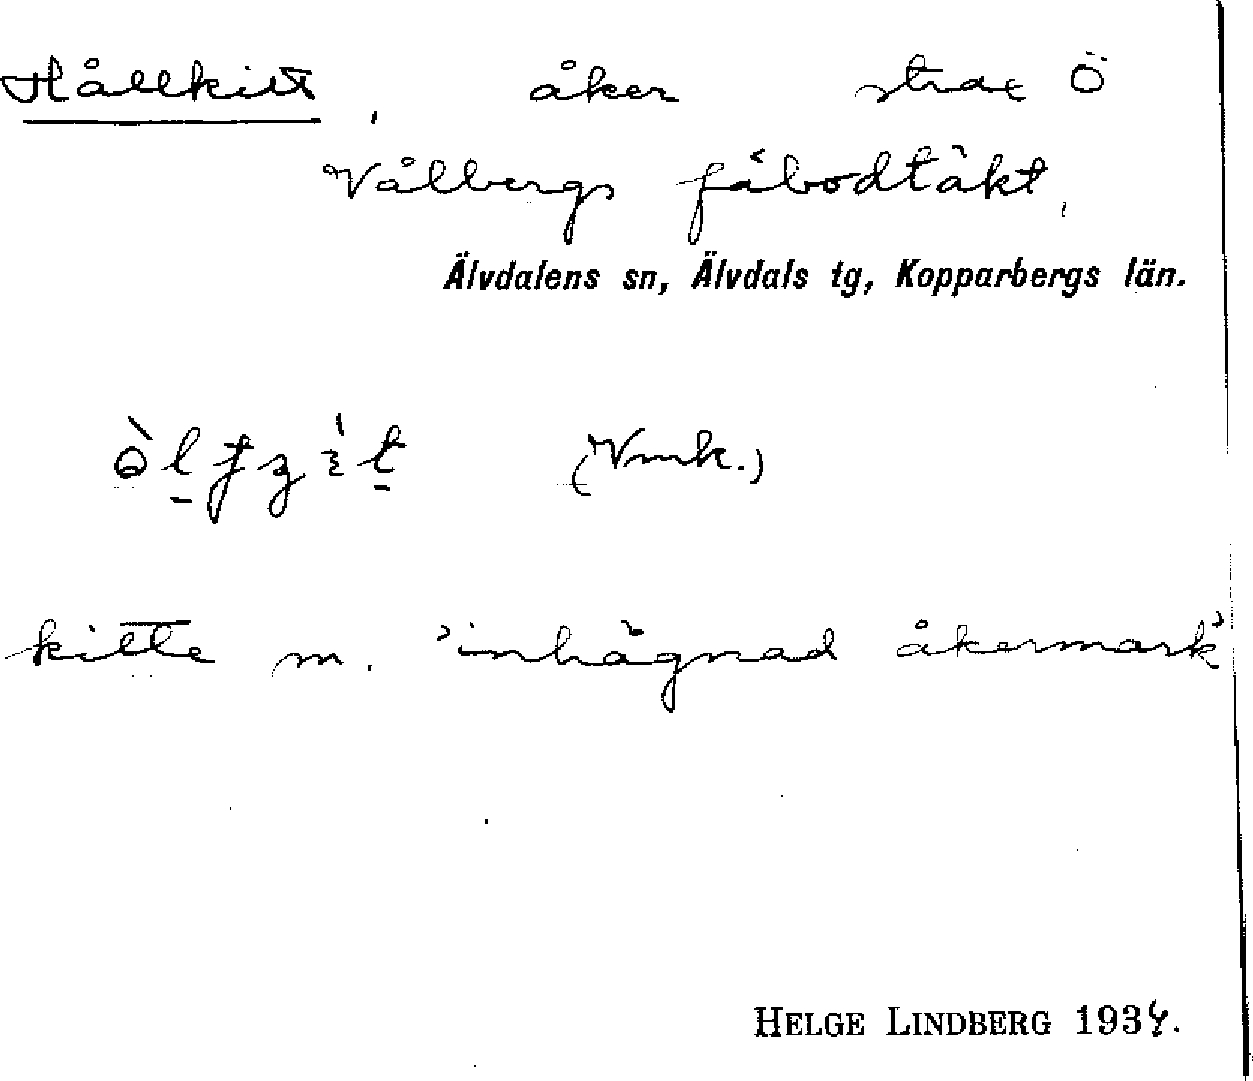 Hållkitt, åker strax Ö
Vålbergs fäbodtäkt,
Älvdalens sn, Älvdals tg, Kopparbergs län.
(Vmk.)
kitte m. 'inhägnad åkermark'
HELGE LINDBERG 1934.